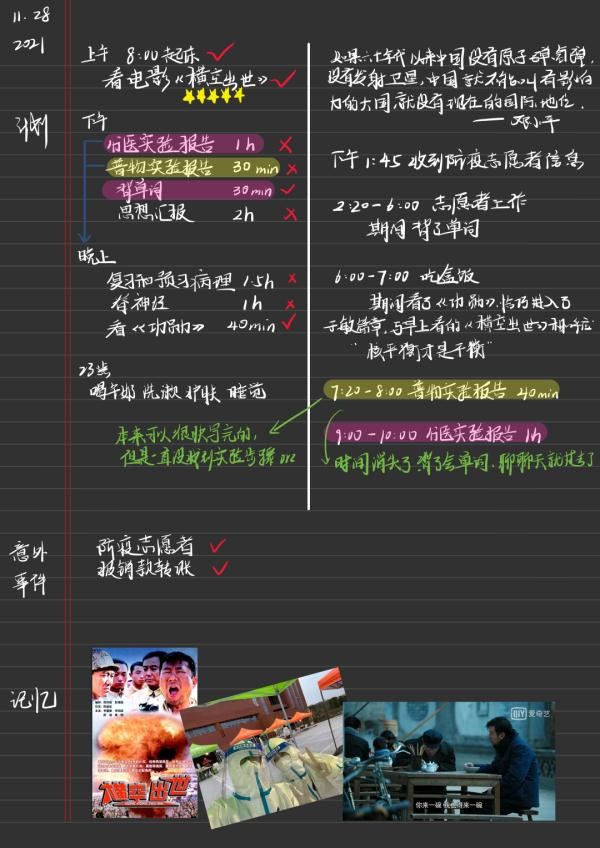 11.28
2021
上午 8:00起床
看电影《横空出世》
计划
下午
分医实验报告 1h
普物实验报告 30min
背单词 30min
思想汇报 2h
晚上
复习和预习病理 1.5h
脊神经 1h
看《功勋》 40min
23点
喝牛奶 洗漱 护肤 睡觉
本来可以很快写完的,
但是一直没找到实验步骤 orz
如果六十年代以来中国没有原子弹、氢弹,
没有发射卫星,中国就不能叫有影响
力的大国,就没有现在的国际地位.
——邓小平
下午1:45 收到防疫志愿者信息
2:20-6:00 志愿者工作
期间背了单词
6:00-7:00 吃盒饭
期间看了《功勋》,恰巧进入了
于敏篇章,与早上看的《横空出世》相呼应
"核平衡才是平衡"
7:20-8:00 普物实验报告 40min
9:00-10:00 分医实验报告 1h
时间消失了 背了会单词、聊聊天就过去了
意外
事件
防疫志愿者
报销款转账
记忆
横空出世
iQIYI 爱奇艺
你来一碗 我也得来一碗